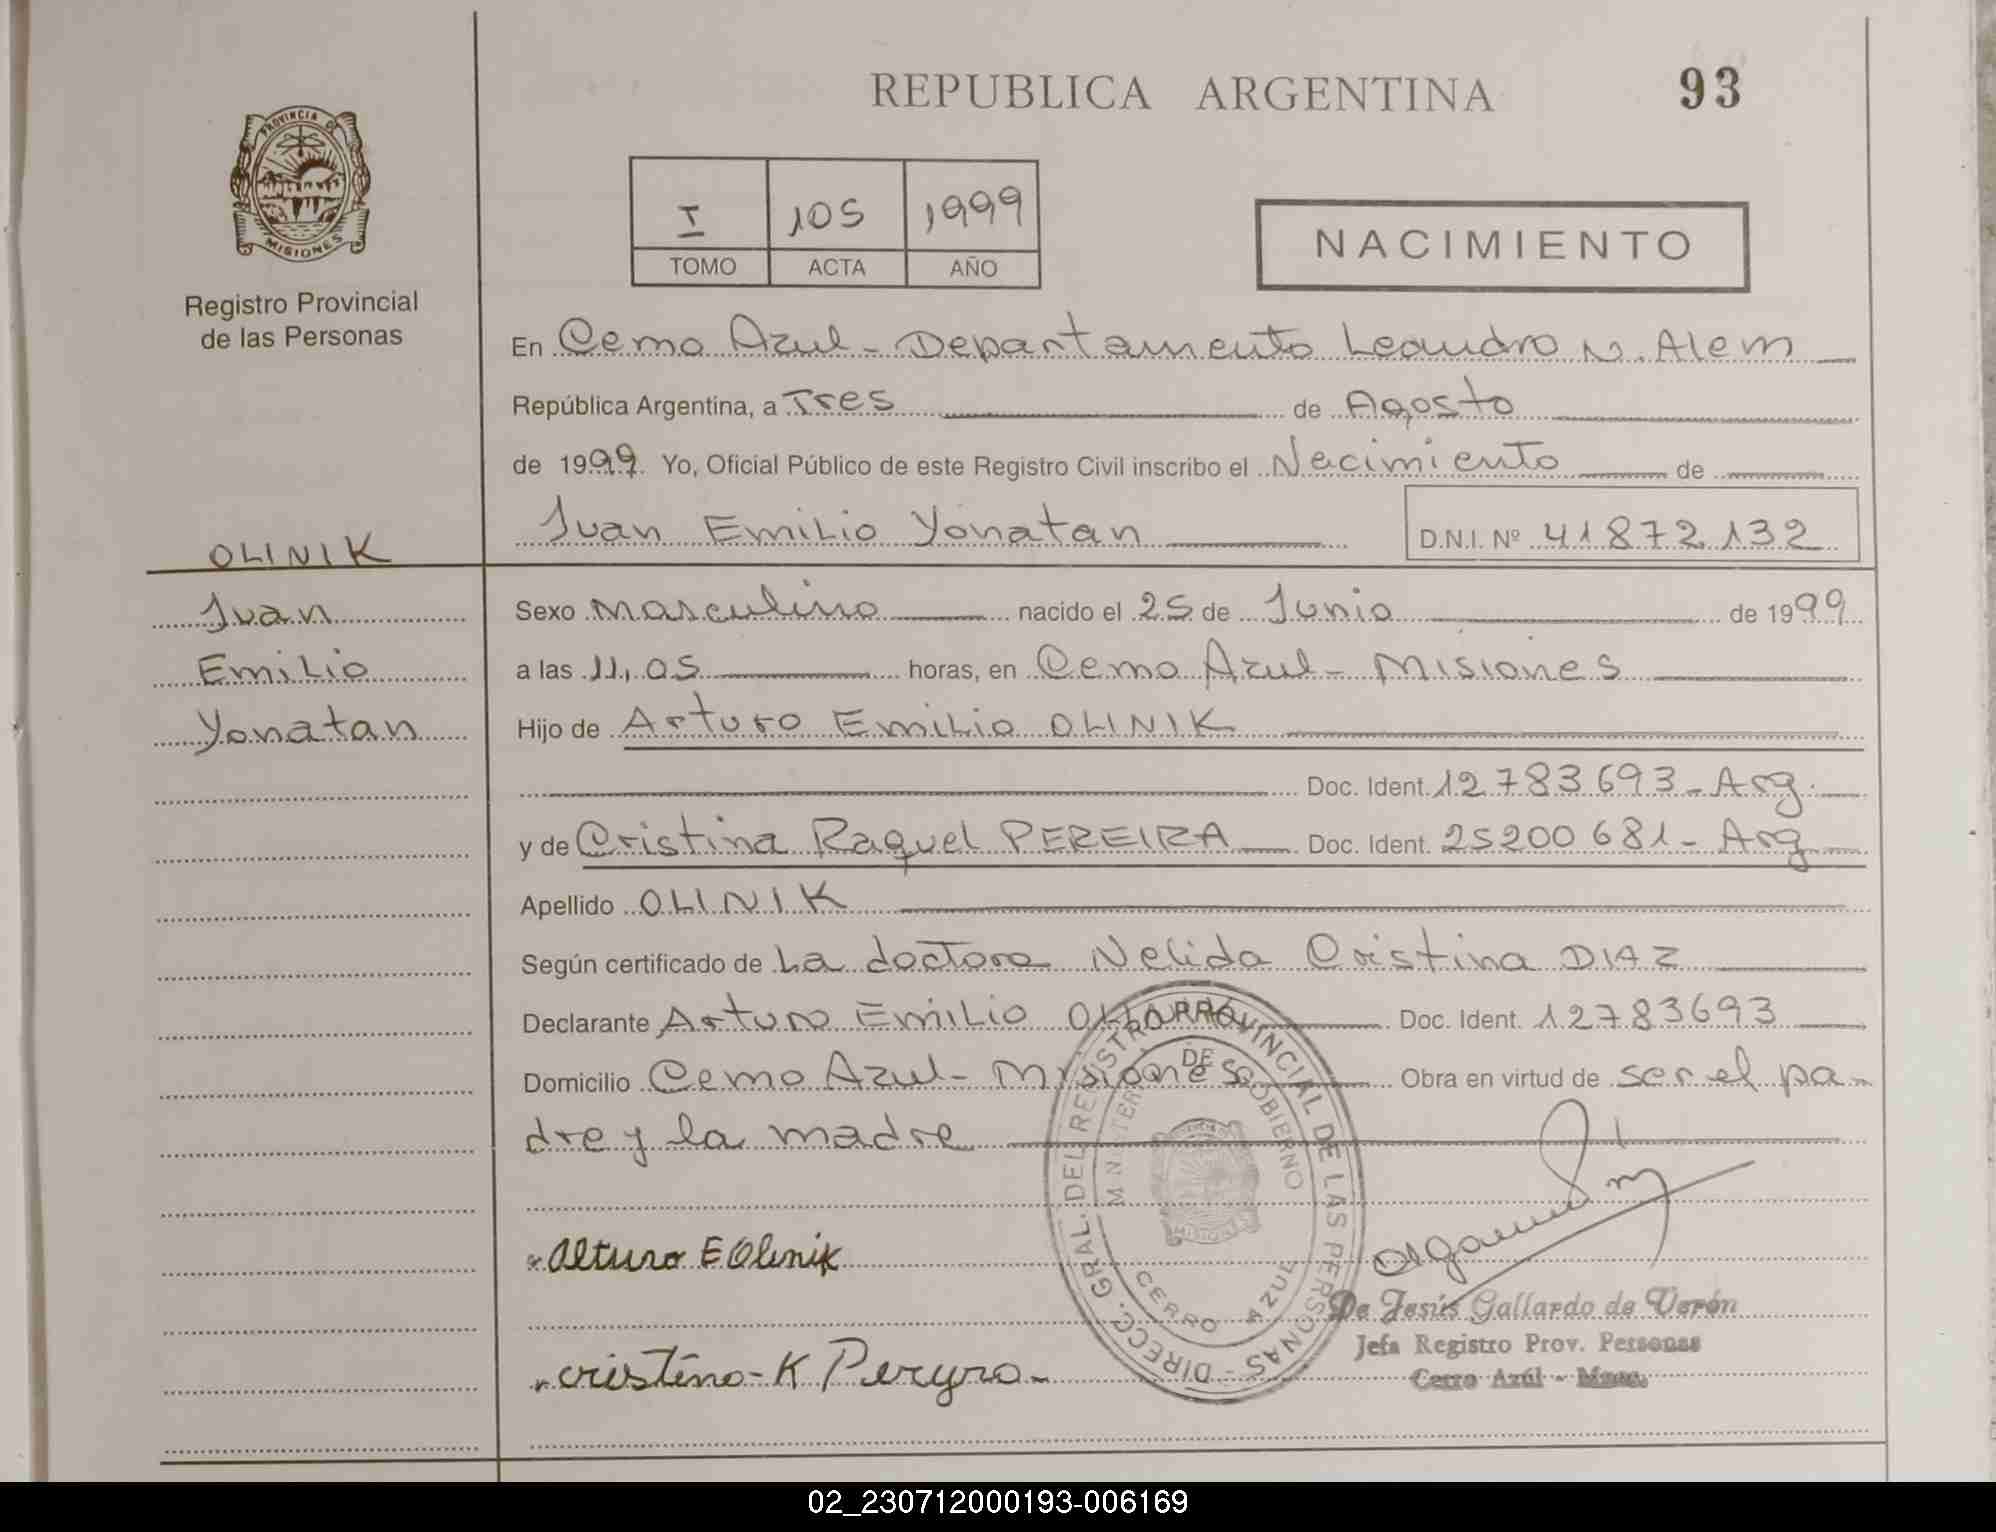 REPUBLICA ARGENTINA
93
PROVINCIA DE
MISIONES
Registro Provincial
de las Personas
I 105 1999
TOMO ACTA AÑO
NACIMIENTO
En Cerro Azul - Departamento Leandro N. Alem
República Argentina, a Tres de Agosto
de 1999 Yo, Oficial Público de este Registro Civil inscribo el Nacimiento de
Juan Emilio Yonatan
D.N.I. Nº 41872132
OLINIK
Juan
Emilio
Yonatan
Sexo masculino nacido el 25 de Junio de 1999
a las 11,05 horas, en Cerro Azul - Misiones
Hijo de Arturo Emilio OLINIK
Doc. Ident. 12783693 - Arg.
y de Cristina Raquel PEREIRA Doc. Ident. 25200681 - Arg
Apellido OLINIK
Según certificado de La doctora Nelida Cristina DIAZ
Declarante Arturo Emilio Doc. Ident. 12783693
Domicilio Cerro Azul - Misiones Obra en virtud de ser el pa-
dre y la madre
DIRECC. GRAL. DEL REGISTRO PROVINCIAL DE LAS PERSONAS -
MINISTERIO DE GOBIERNO
MISIONES
CERRO AZUL
Arturo E Olinik
cristina - K Pereyra -
De Jesús Gallardo de Verón
Jefa Registro Prov. Personas
Cerro Azúl - Mnes.
02_230712000193-006169